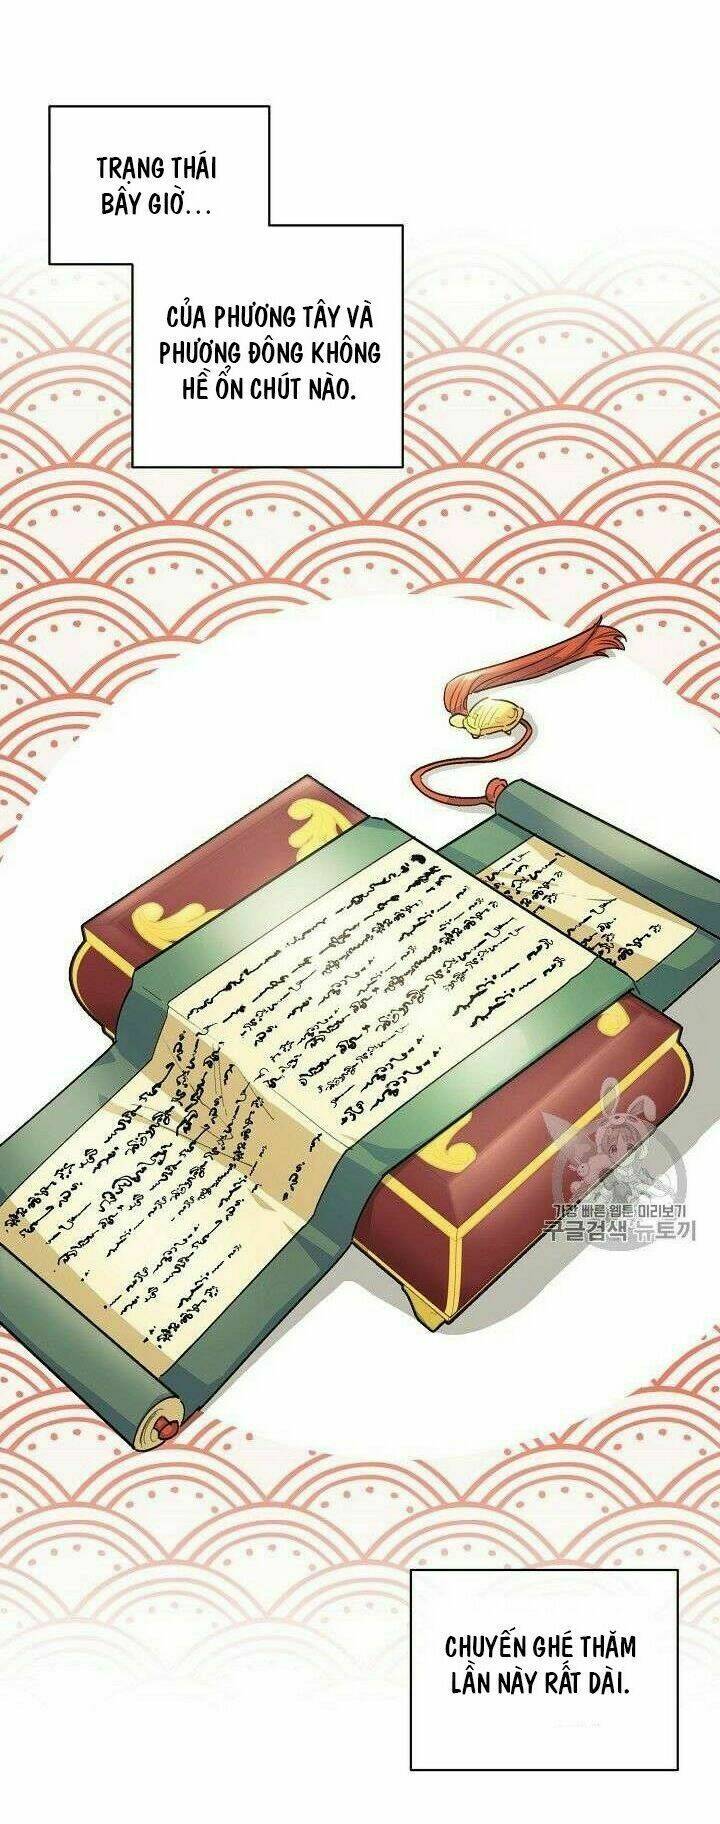 TRẠNG THÁI
BÂY GIỜ...
CỦA PHƯƠNG TÂY VÀ
PHƯƠNG ĐÔNG KHÔNG
HỀ ỔN CHÚT NÀO.
가장 빠른 웹툰 미리보기
구글검색 뉴토끼
CHUYẾN GHÉ THĂM
LẦN NÀY RẤT DÀI.